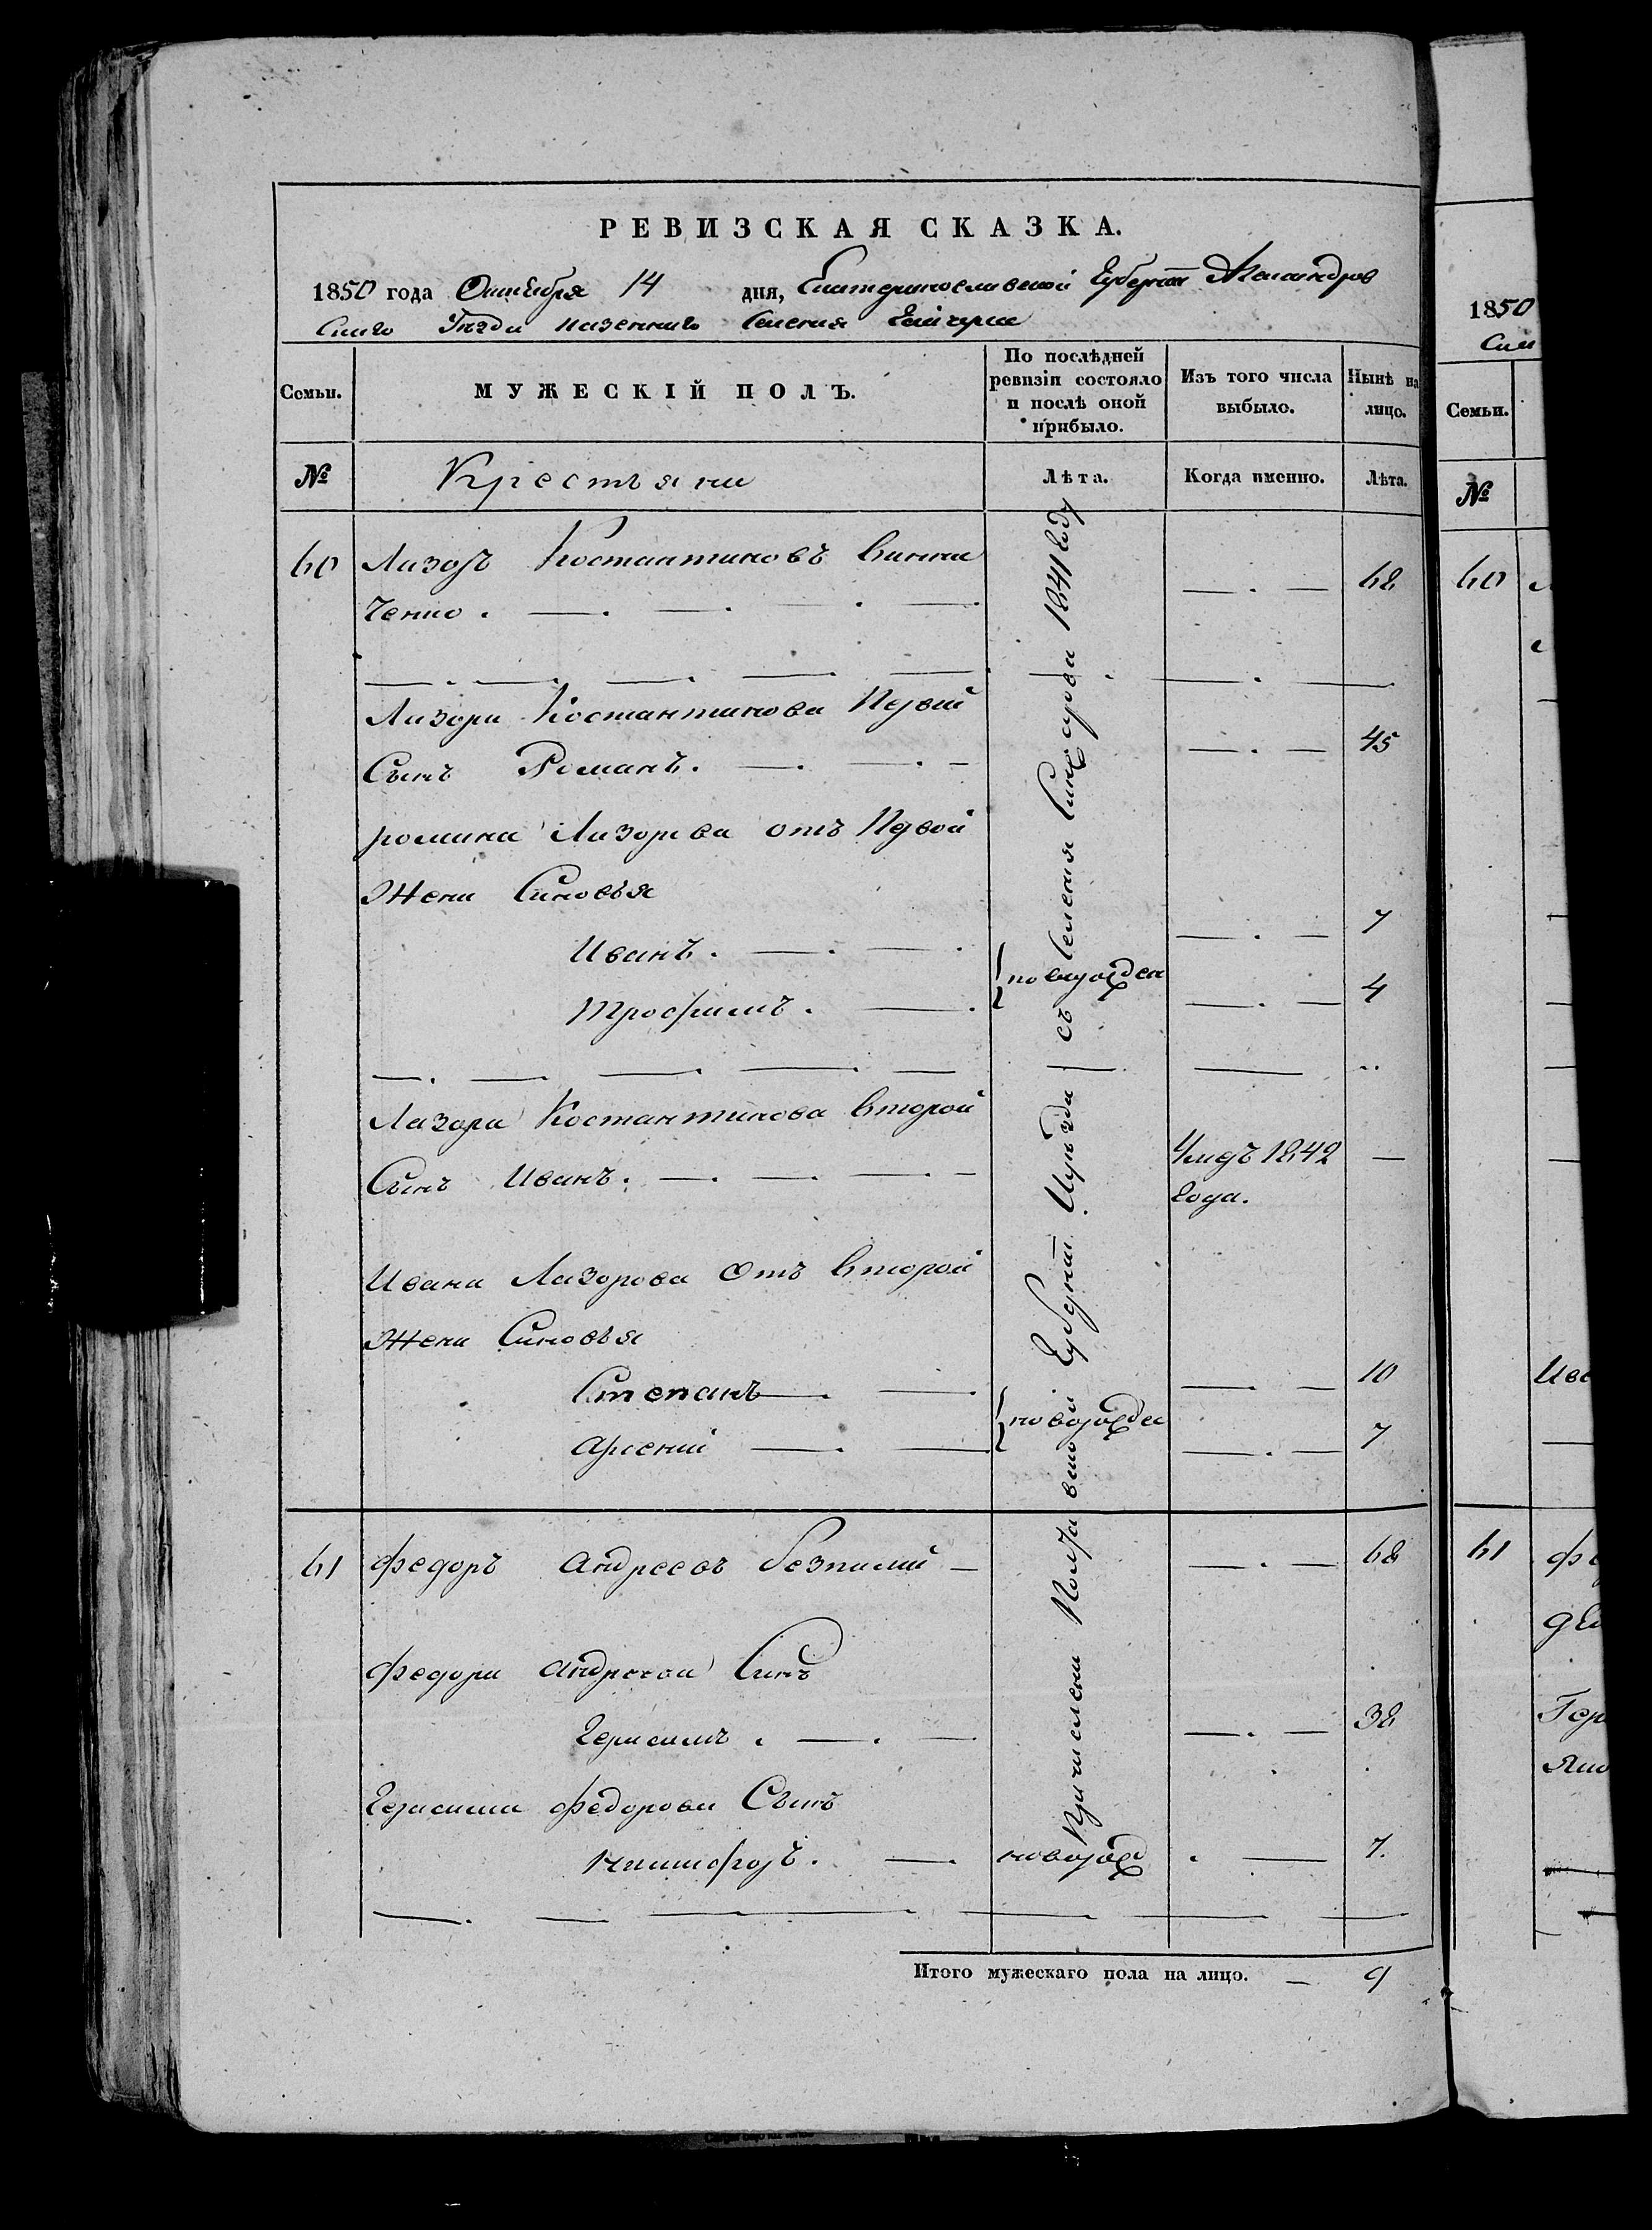 РЕВИЗСКАЯ СКАЗКА.
1850 года Октября 14 дня, Екатеринославской Губерніи Александров
скаго Уѣзда казеннаго Селения Гайчула
Семьи.
МУЖЕСКІЙ ПОЛЪ.
По послѣдней ревизіи состояло и послѣ оной прибыло.
Изъ того числа выбыло.
Нынѣ на лицо.
№
Крестьяни
Лѣта.
Когда именно.
Лѣта.
60 Лазоръ Костантиновъ Винни 62
ченко.
Лазора Костантинова Первий
Сынъ Романъ. 45
романа Лазорева отъ Первой
Жени Синовья
Иванъ. 7
новорожден
Трофимъ. 4
Лазора Костантинова Второй
Сынъ Иванъ. Умеръ 1842
года.
Ивана Лазорова Отъ Второй
Жени Синовья
Степанъ 10
новорожде
Арсений 7
61 Федоръ Андреевъ Безпалий 68
Федора Андреева Синъ
Герасимъ. 38
Герасима Федорова Сынъ
Никифоръ. новорожд 7.
Причислени Полтавской Губерніи Уезда съ Селения 1841 году
Итого мужескаго пола на лицо. 9
1850
Семьи.
№
60
Ива
61 Фе
Гер